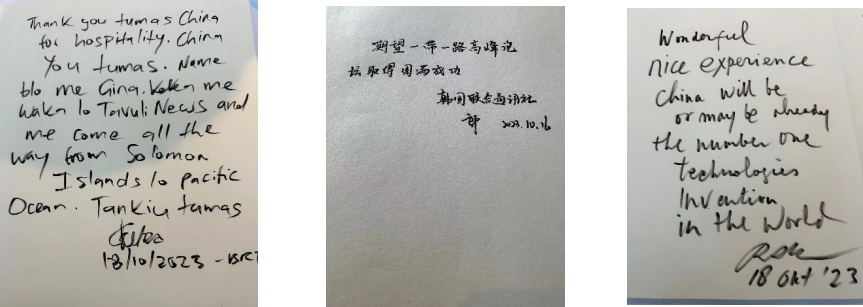 Thank you tumas China
for hospitality. China
You tumas. Name
blo me Gina. me
waka lo Tavuli News and
me come all the
way from Solomon
Islands lo pacific
Ocean. Tankiu tumas
18/10/2023
期望一带一路高峰论
坛取得圆满成功
韩国联合通讯社
郭 2023.10.16
Wonderful
nice experience
China will be
or may be already
the number one
technologies
Invention
in the World
18 Okt '23